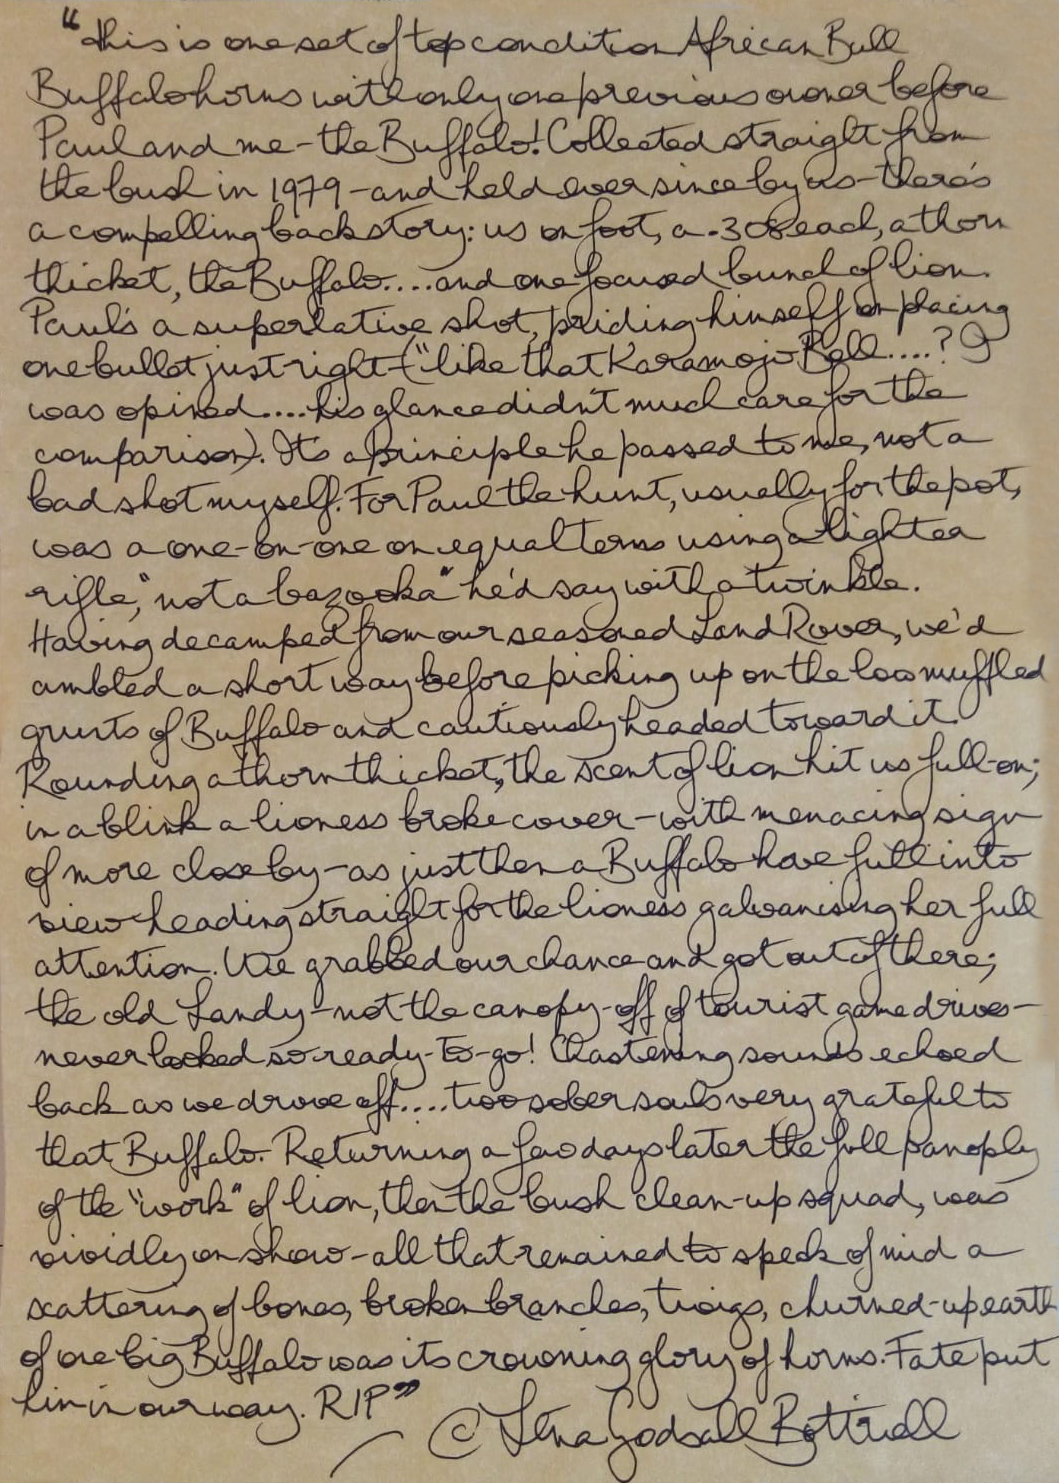 "This is one set of top condition African Bull
Buffalo horns with only one previous owner before
Paul and me - the Buffalo! Collected straight from
the bush in 1979 - and held ever since by us - there's
a compelling backstory: us on foot, a .308 each, a thorn
thicket, the Buffalo.... and one focused bunch of lion.
Paul's a superlative shot, priding himself on placing
one bullet just right - ("like that Karamojo Bell....? I
was opined.... his glance didn't much care for the
comparison). It's a principle he passed to me, not a
bad shot myself. For Paul the hunt, usually for the pot,
was a one-on-one on equal terms using a lighter
rifle, "not a bazooka" he'd say with a twinkle.
Having decamped from our seasoned Land Rover, we'd
ambled a short way before picking up on the low muffled
grunts of Buffalo and cautiously headed toward it.
Rounding a thorn thicket, the scent of lion hit us full-on;
in a blink a lioness broke cover - with menacing sign
of more close by - as just then a Buffalo hove full into
view heading straight for the lioness galvanising her full
attention. We grabbed our chance and got out of there;
the old Landy - not the canopy-off of tourist game drives -
never looked so ready-to-go! Chastening sounds echoed
back as we drove off.... two sober souls very grateful to
that Buffalo. Returning a few days later the full panoply
of the "work" of lion, then the bush clean-up squad, was
vividly on show - all that remained to speak of mid a
scattering of bones, broken branches, twigs, churned-up earth
of one big Buffalo was its crowning glory of horns. Fate put
him in our way. RIP"
© Lena Godsall Bottriell